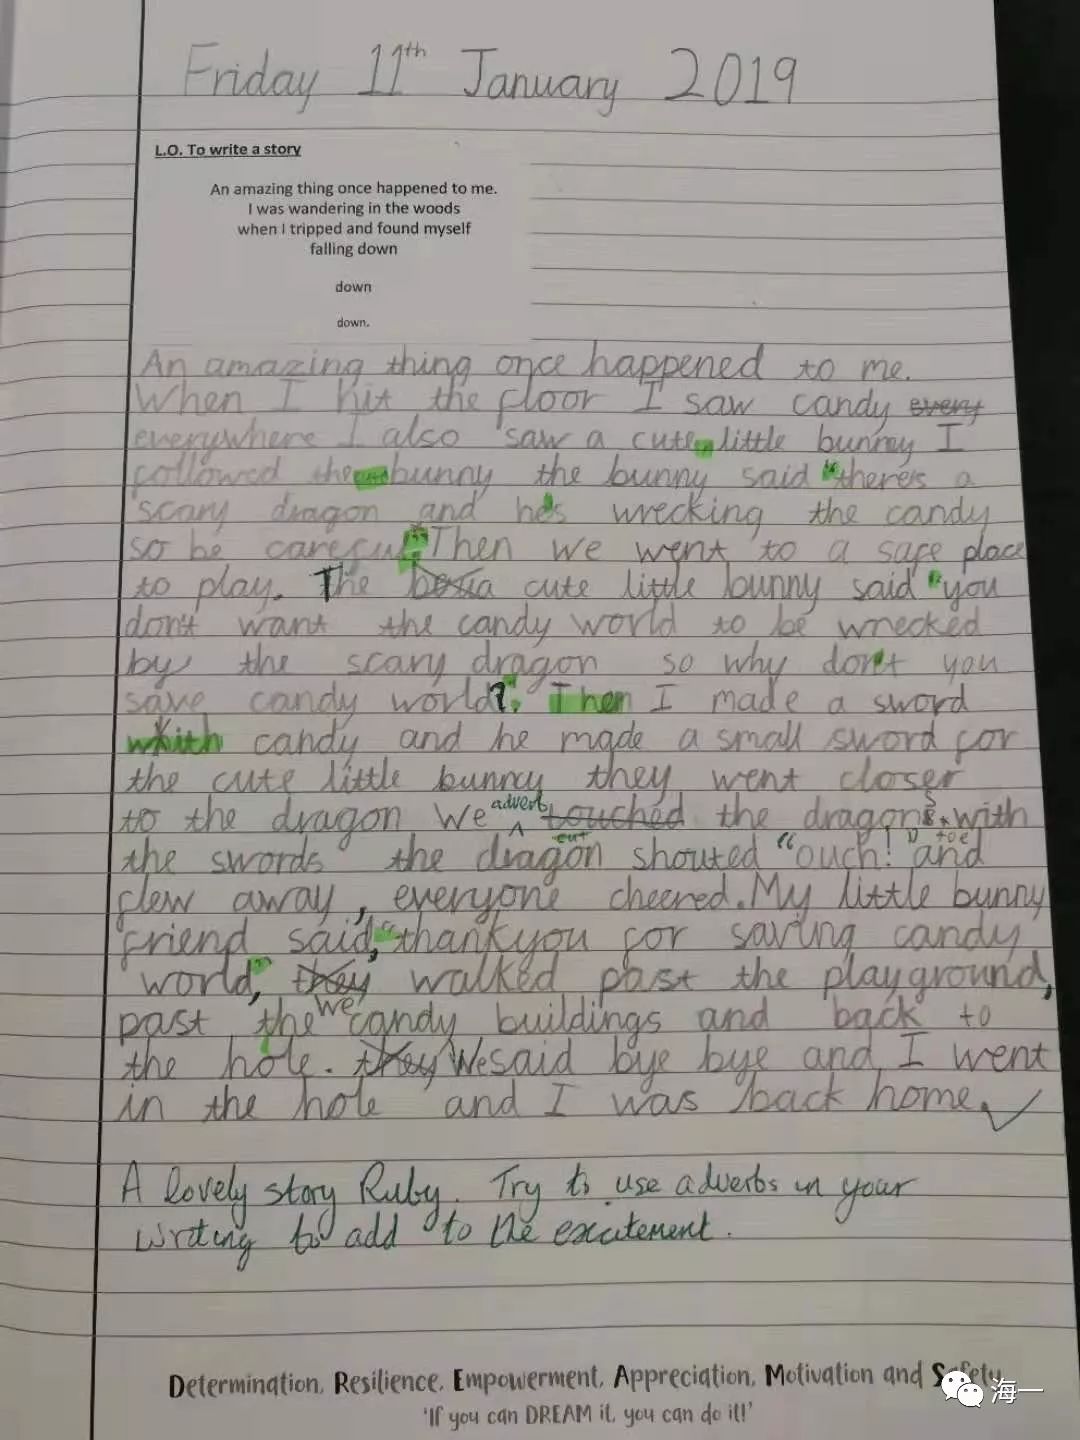 Friday 11th January 2019
L.O. To write a story
An amazing thing once happened to me.
I was wandering in the woods
when I tripped and found myself
falling down
down
down.
An amazing thing once happened to me.
When I hit the floor I saw candy every
everywhere I also saw a cute little bunny I
followed the bunny the bunny said "there's a
scary dragon and he's wrecking the candy
so be careful" Then we went to a safe place
to play. The cute little bunny said "you
don't want the candy world to be wrecked
by the scary dragon so why don't you
save candy world?" Then I made a sword
with candy and he made a small sword for
the cute little bunny they went closer
to the dragon We adverb touched the dragons with
cut toe
the swords the dragon shouted "ouch!" and
flew away, everyone cheered. My little bunny
friend said, "thankyou for saving candy
world", they walked past the playground,
we
past the candy buildings and back to
the hole. they We said bye bye and I went
in the hole and I was back home.
A lovely story Ruby. Try to use adverbs in your
writing to add to the excitement.
Determination, Resilience, Empowerment, Appreciation, Motivation and Safety
'If you can DREAM it, you can do it!'
海一